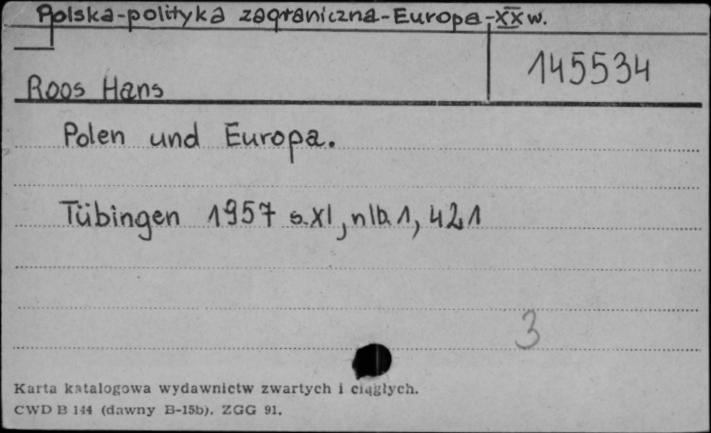 Polska-polityka zagraniczna-Europa-XX w.
145534
Roos Hans
Polen und Europa.
Tübingen 1957 s.XI, nlb.1, 421
3
Karta katalogowa wydawnictw zwartych i ciągłych.
CWD B 144 (dawny B-15b). ZGG 91.